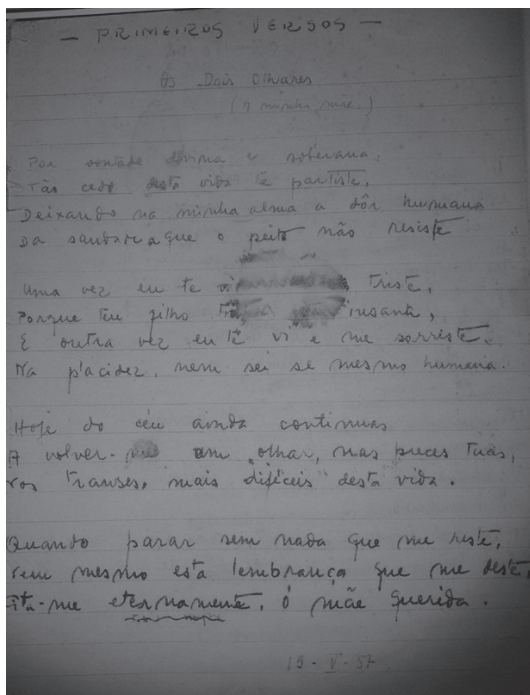 — PRIMEIROS VERSOS —
Os Dois Olhares
(A minha mãe.)
Por vontade divina e soberana,
Tão cedo desta vida te partiste,
Deixando na minha alma a dôr humana
Da saudade a que o peito não resiste
Uma vez eu te vi triste,
Porque teu filho insana,
E outra vez eu te vi e me sorriste,
Na placidez, nem sei se mesmo humana.
Hoje do céu ainda continuas
A volver-me um olhar, nas preces tuas,
Nos transes, mais difíceis desta vida.
Quando parar sem nada que me reste,
Nem mesmo esta lembrança que me deste,
Fita-me eternamente, ó mãe querida.
19-V-57